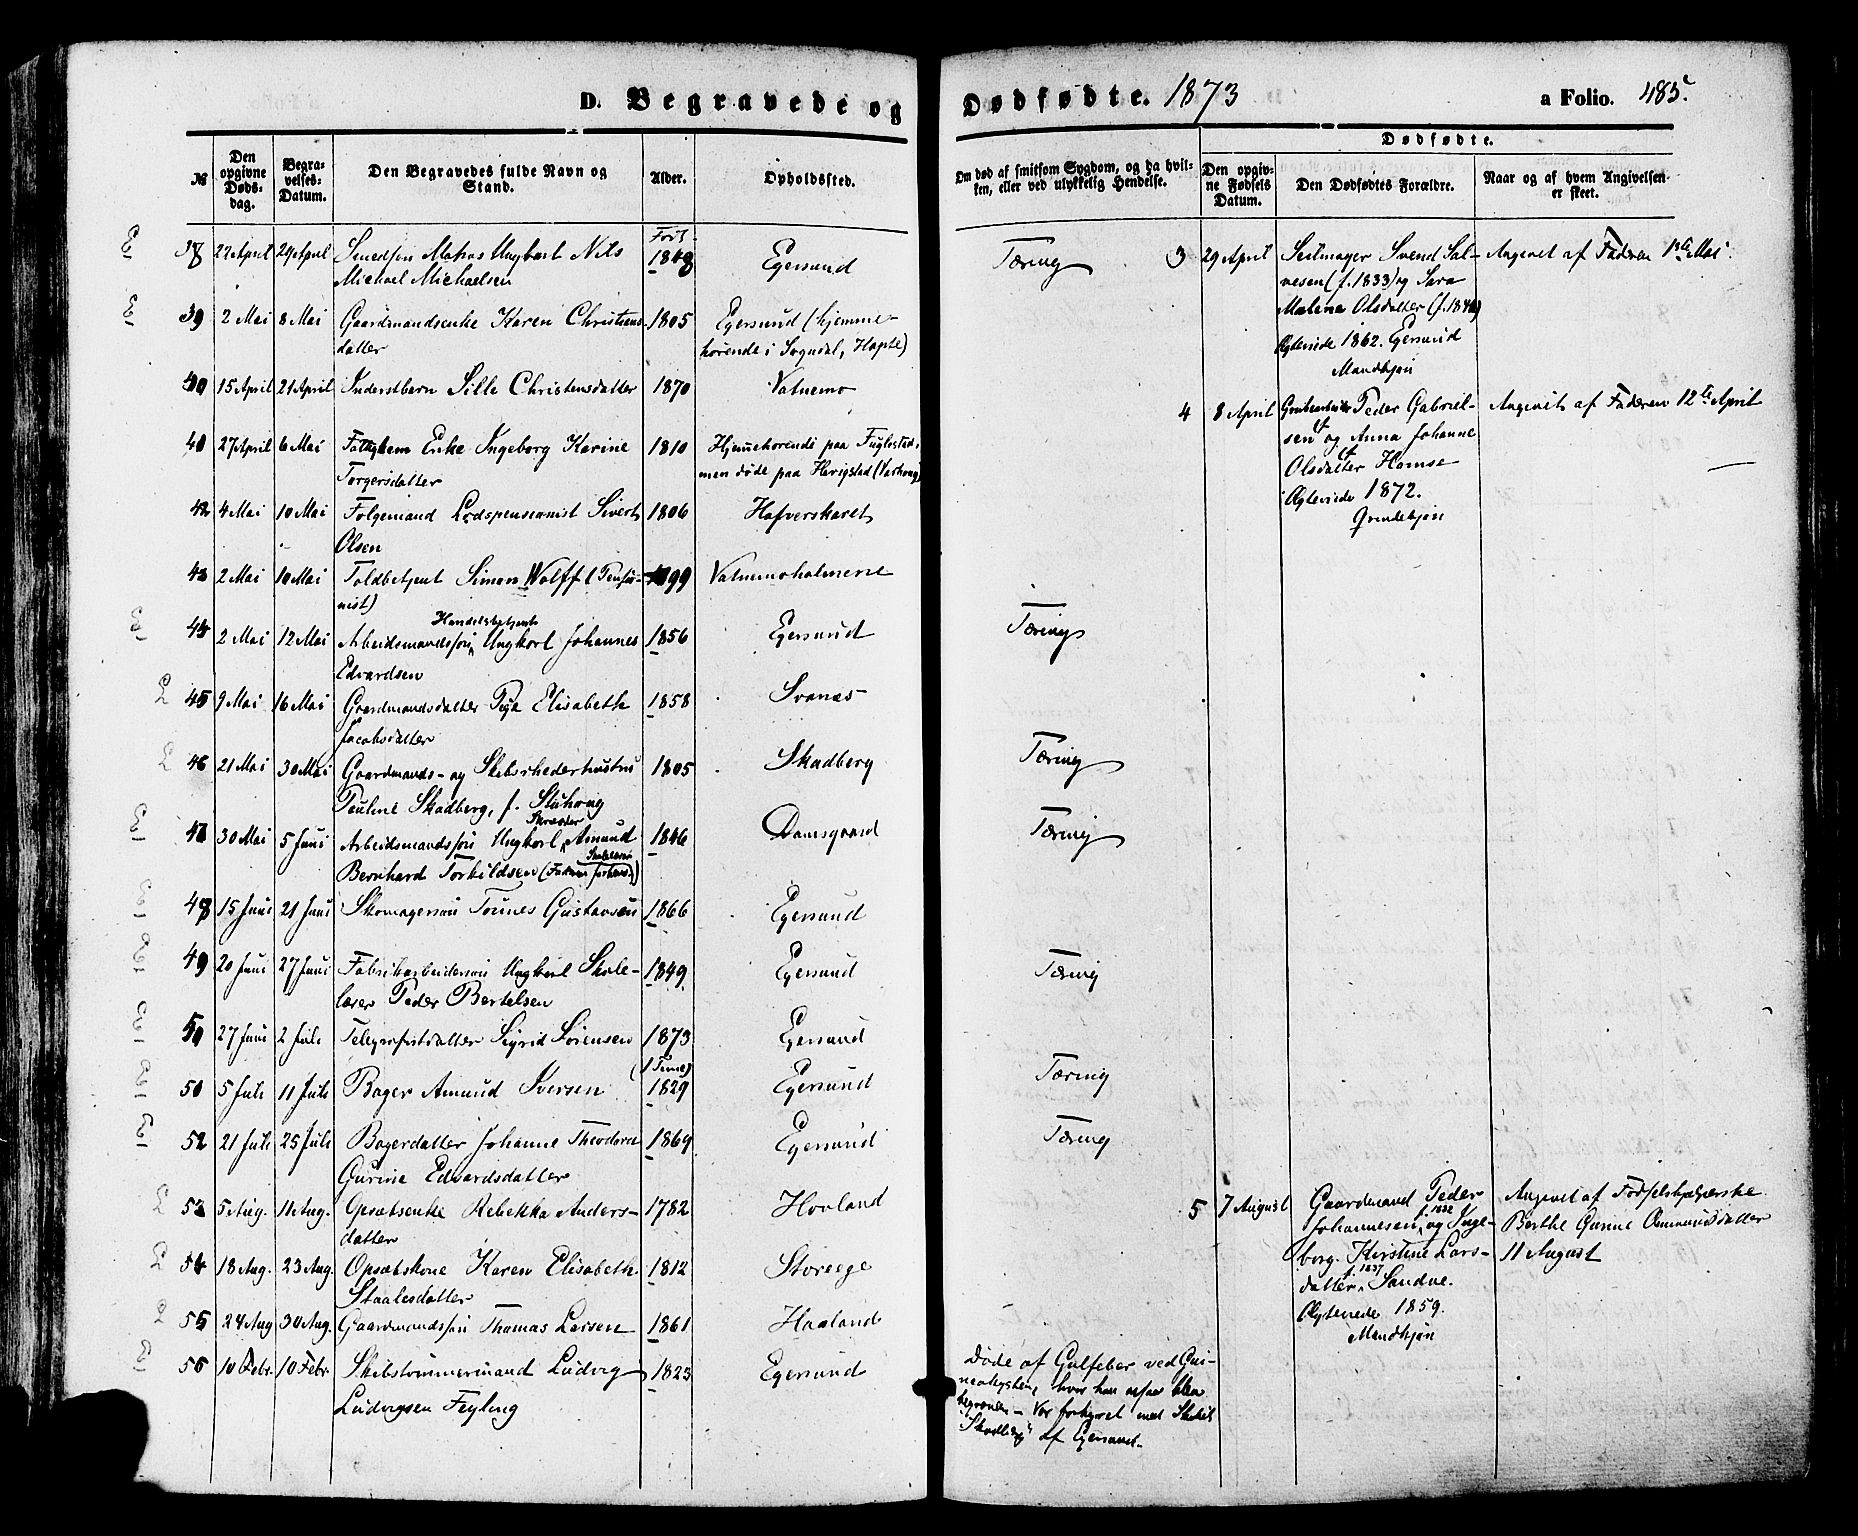 D. Begravede og Dødfødte. 1873 a Folio. 485.
Dødfødte.
№ | Den opgivne Døds-dag. | Begra-velses-Datum. | Den Begravedes fulde Navn og Stand. | Alder. | Opholdssted. | Om død af smitsom Sygdom, og da hvil-ken, eller ved ulykkelig Hendelse. | Den opgiv-ne Fødsels Datum. | Den Dødfødtes Forældre. | Naar og af hvem Angivelsen er skeet.
E 38 27 April 29 April Smedsøn Matros Ungkarl Nils Født 1848 Egersund Tæring
Michael Michaelsen
E 39 2 Mai 8 Mai Gaardmandsenke Karen Christens- 1805 Egersund (hjemme-
datter hørende i Sogndal, )
40 15 April 21 April Inderstbarn Sille Christensdatter 1870 Vatnemo
41 27 April 6 Mai Fattiglem Enke Ingeborg Karine 1810 Hjemmehørende paa Fuglestad,
Torgersdatter men døde paa (Varhoug)
42 4 Mai 10 Mai Følgemand Lodspensionist Sivert 1806 Hafverskaret
Olsen
43 2 Mai 10 Mai Toldbetjent Simon Wolff (Pensio- 1799 Vatnemoholmene
nist)
Handelsbetjent
E 44 2 Mai 12 Mai Arbeidsmandssøn Ungkarl Johannes 1856 Egersund Tæring
Edvardsen
L 45 9 Mai 16 Mai Gaardmandsdatter Elisabeth 1858 Svanes
Jacobsdatter
L 46 21 Mai 30 Mai Gaardmands- og Skibsrhederhustru 1805 Skadberg Tæring
Pauline Skadberg, f. Stuhoug
Skræder
E 47 30 Mai 5 Juni Arbeidsmandssøn Ungkarl Amund 1846 Damsgaard Tæring
Bernhard Torkildsen (Faderen )
E 48 15 Juni 21 Juni Skomagersøn Tønnes Gustavsen 1866 Egersund
E 49 20 Juni 27 Juni Fabrikarbeidersøn Ungkarl Skole- 1849 Egersund Tæring
lærer Peder Bertelsen
E 50 27 Juni 2 Juli Telegrafistdatter Sigrid Sørensen 1873 Egersund
(1 Time)
E 51 5 Juli 11 Juli Bager Amund Iversen 1829 Egersund Tæring
E 52 21 Juli 25 Juli Bagerdatter Johanne Theodora 1869 Egersund Tæring
Gurine Edvardsdatter
L 53 5 Aug. 11 Aug. Opsætsenke Rebekka Anders- 1782 Hovland
datter
L 54 18 Aug. 23 Aug. Opsætskone Karen Elisabeth 1812 Storeege
Staalesdatter
L 55 24 Aug 30 Aug. Gaardmandssøn Thomas Larsen 1861 Haaland
E 56 10 Febr. 10 Febr. Skibstømmermand Ludvig 1823 Egersund
Ludvigsen Feyling
Døde af Gulfeber ved Gui-
neakysten, hvor han ogsaa blev
begraven – Var forhyret med Skibet
"Skadberg" af Egersund.
3 29 April Seilmager Svend Sal- Angivet af Faderen 1ste Mai
vesen (f. 1833) og Sara
Malene Olsdatter (f. 1840)
Ægteviede 1862. Egersund
Mandkjøn
4 8 April Peder Gabriel- Angivet af Faderen 12te April
sen og Anna Johanne
Olsdatter Hamse
Ægteviede 1872.
Qvindekjøn
5 7 August Gaardmand Peder Angivet af Fødselshjelperske
Johannesen f. 1832 og Inge- Berthe Gurine Ommundsdatter
borg Kirstine Lars- 11 August
datter f. 1837, Sandve.
Ægteviede 1859.
Mandkjøn